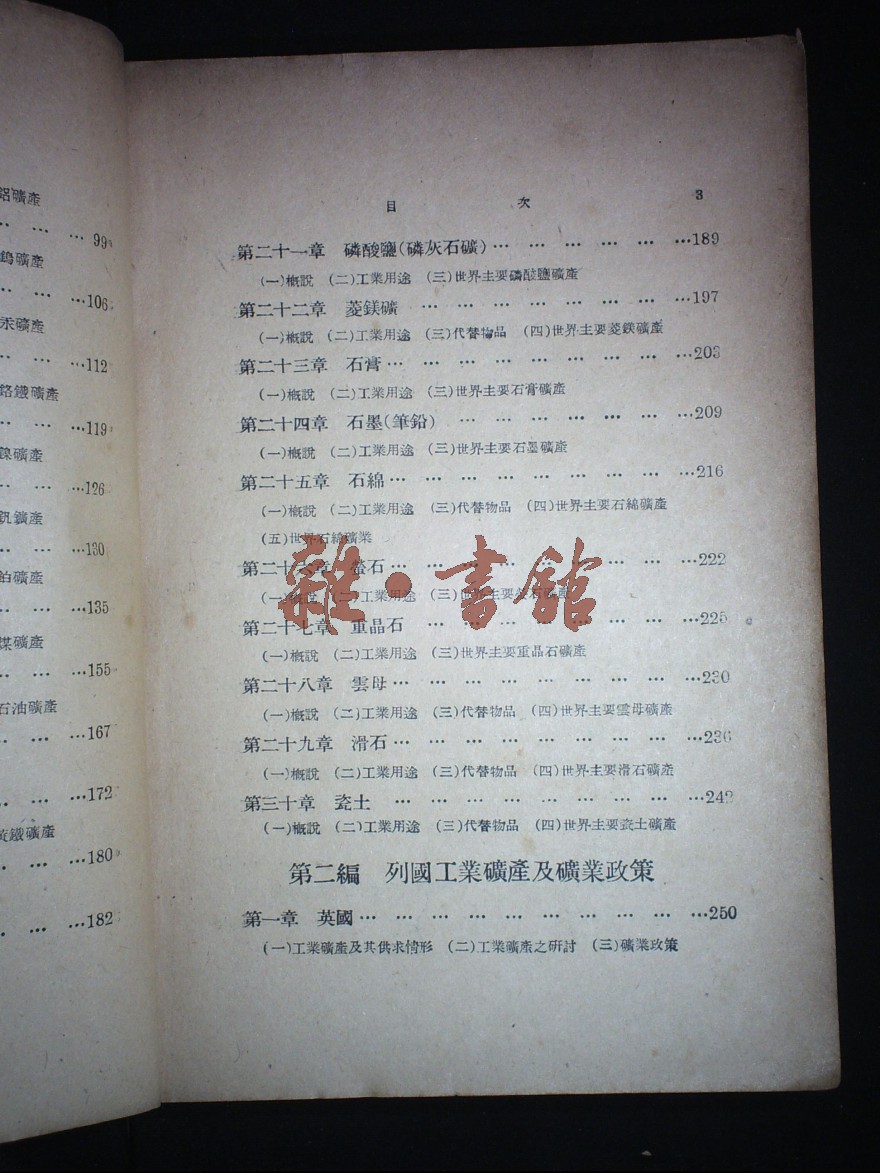 鋁礦產
… … …99
鎢礦產
… … …106
汞礦產
… … …112
鉻鐵礦產
… … …119
鎳礦產
… … …126
釩鑛產
… … …130
鉑礦產
… … …135
煤礦產
… … …155
石油礦產
… … …167
… … …172
黃鐵礦產
… … …180
… … …182
目 次 3
第二十一章 磷酸鹽(磷灰石礦)… … … … … …189
(一)概說 (二)工業用途 (三)世界主要磷酸鹽礦產
第二十二章 菱鎂礦 … … … … … … … …197
(一)概說 (二)工業用途 (三)代替物品 (四)世界主要菱鎂礦產
第二十三章 石膏… … … … … … … … …203
(一)概說 (二)工業用途 (三)世界主要石膏礦產
第二十四章 石墨(筆鉛) … … … … … … …209
(一)概說 (二)工業用途 (三)世界主要石墨礦產
第二十五章 石綿… … … … … … … … …216
(一)概說 (二)工業用途 (三)代替物品 (四)世界主要石綿礦產
(五)世界石綿礦業
第二十六章 螢石… … … … … … … … …222
(一)概說 (二)工業用途 (三)世界主要螢石礦產
第二十七章 重晶石 … … … … … … … …225
(一)概說 (二)工業用途 (三)世界主要重晶石礦產
第二十八章 雲母… … … … … … … … …230
(一)概說 (二)工業用途 (三)代替物品 (四)世界主要雲母礦產
第二十九章 滑石… … … … … … … … …236
(一)概說 (二)工業用途 (三)代替物品 (四)世界主要滑石礦產
第三十章 瓷土 … … … … … … … … …242
(一)概說 (二)工業用途 (三)代替物品 (四)世界主要瓷土礦產
第二編 列國工業礦產及礦業政策
第一章 英國… … … … … … … … … …250
(一)工業礦產及其供求情形 (二)工業礦產之研討 (三)礦業政策
雜·書館